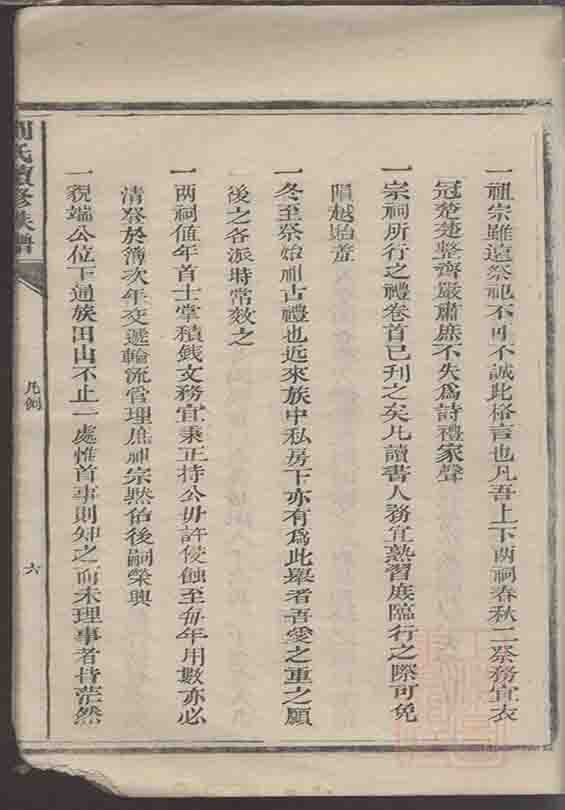 一祖宗雖遠祭祀不可不誠此格言也凡吾上下两祠春秋二祭務宜衣
冠楚楚整齊嚴肅庶不失爲詩禮家聲
一宗祠所行之禮卷首已刋之矣凡讀書人務宜熟習庶臨行之際可免
隕越貽羞
一冬至祭始祖古禮也近來族中私房下亦有爲此舉者吾愛之重之願
後之各派時常效之
一两祠值年首士掌積錢文務宜秉正持公毋許侵蝕至每年用數亦必
清登於簿次年交遞輪流管理庶祖宗黙佑後嗣榮興
一貌端公位下通族田山不止一處惟首事則知之而未理事者皆茫然
氏續修族譜
凡例
六